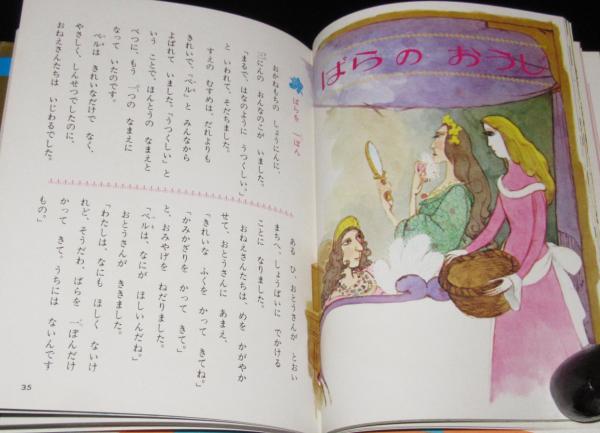 ばらの おうじ
ばらを 一ぽん
おかねもちの しょうにんに、
三にんの おんなのこが いました。
「まるで、はなのように うつくしい。」
と いわれて、そだちました。
すえの むすめは、だれよりも
きれいで、「ベル」と みんなから
よばれて いました。「うつくしい」と
いう ことで、ほんとうの なまえと
べつに、もう 一つの なまえに
なって いたのです。
ベルは きれいなだけで なく、
やさしく、しんせつでしたのに、
おねえさんたちは いじわるでした。
ある ひ、おとうさんが とおい
まちへ、しょうばいに でかける
ことに なりました。
おねえさんたちは、めを かがやか
せて、おとうさんに あまえ、
「きれいな ふくを かって きてね。」
「かみかざりを かって きて。」
と、おみやげを ねだりました。
「ベルは、なにが ほしいんだね。」
おとうさんが ききました。
「わたしは、なにも ほしく ないけ
れど、そうだわ、ばらを 一ぽんだけ
かって きて。うちには ないんです
もの。」
35